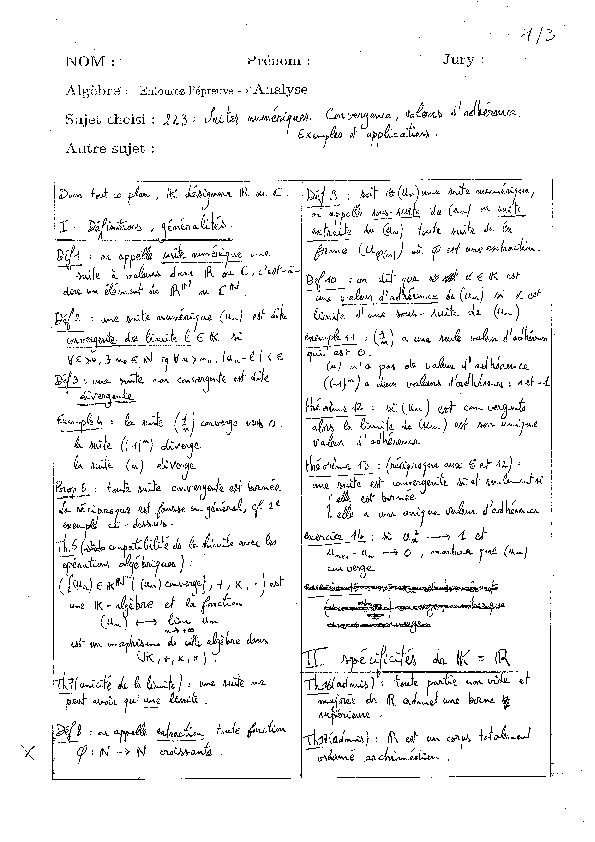 1/3
NOM : Prénom : Jury :
Algèbre : Entourez l'épreuve → Analyse
Sujet choisi : 223 : Suites numériques. Convergence, valeurs d'adhérence.
Exemples d'applications.
Autre sujet :
Dans tout ce plan, IK désignera IR ou C.
I - Définitions, généralités.
Déf 1 : on appelle suite numérique une
suite à valeurs dans IR ou C, c'est-à-
dire un élément de IR^N ou C^N.
Déf 2 : une suite numérique (un) est dite
convergente de limite l ∈ IK si
∀ε>0, ∃ n0 ∈ N tq ∀n>n0, |un - l| < ε
Déf 3 : une suite non convergente est dite
divergente
Exemple 4 : la suite (1/n) converge vers 0.
la suite (-1)^n diverge
la suite (n) diverge
Prop 5 : toute suite convergente est bornée
La réciproque est fausse en général, cf 2e
exemple ci-dessus.
Th.6 (compatibilité de la limite avec les
opérations algébriques) :
({(un) ∈ IK^N | (un) converge}, +, ×, ·) est
une IK-algèbre et la fonction
(un) ⟼ lim un
n→+∞
est un morphisme de cette algèbre dans
(IK, +, ×, ·).
Th 7 (unicité de la limite) : une suite ne
peut avoir qu'une limite.
Déf 8 : on appelle extraction toute fonction
X φ : N → N croissante.
Déf 9 : soit (un) une suite numérique,
on appelle sous-suite de (un) ou suite
extraite de (un) toute suite de la
forme (uφ(n)) où φ est une extraction.
Déf 10 : on dit que α ∈ IK est
une valeur d'adhérence de (un) si α est
limite d'une sous-suite de (un)
exemple 11 : (1/n) a une seule valeur d'adhérence
qui est 0.
(n) n'a pas de valeur d'adhérence
((-1)^n) a deux valeurs d'adhérence : 1 et -1
théorème 12 : si (un) est convergente
alors la limite de (un) est son unique
valeur d'adhérence
théorème 13 : (réciproque aux 5 et 12) :
une suite est convergente si et seulement si
elle est bornée
elle a une unique valeur d'adhérence
exercice 14 : si → 1 et
un+1 - un → 0, montrer que (un)
converge
II - spécificités de IK = IR
Th 15 (admis) : toute partie non vide et
majorée de IR admet une borne
supérieure.
Th 16 (admis) : IR est un corps totalement
ordonné archimédien.